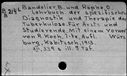 Bandelier, B. und Roepke, O.
Lehrbuch der spezifischen
Diagnostik und Therapie der
Tuberkulose. Für Ärzte und
Studierende. Mit einem Vorwort
von R. Koch. 7te Aufl. Würz-
burg, Kabitzsch, 1913.